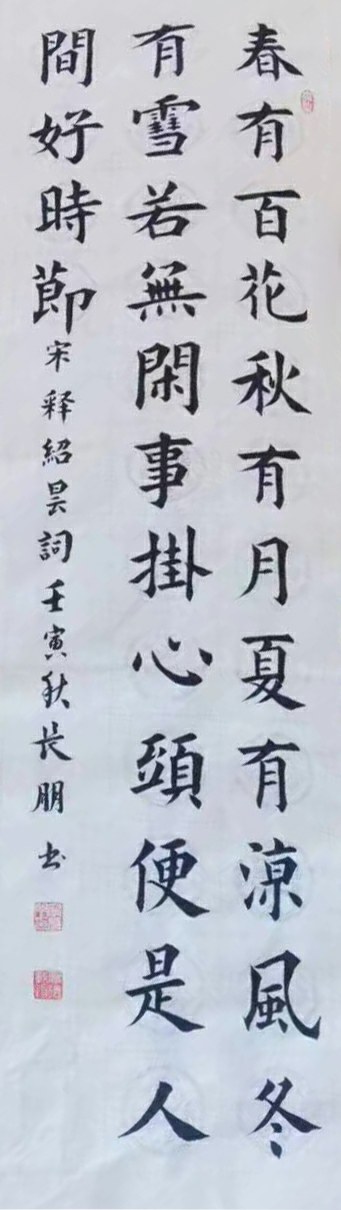 春有百花秋有月夏有凉風冬
有雪若無閑事掛心頭便是人
間好時節宋释紹昙詞壬寅秋长朋书